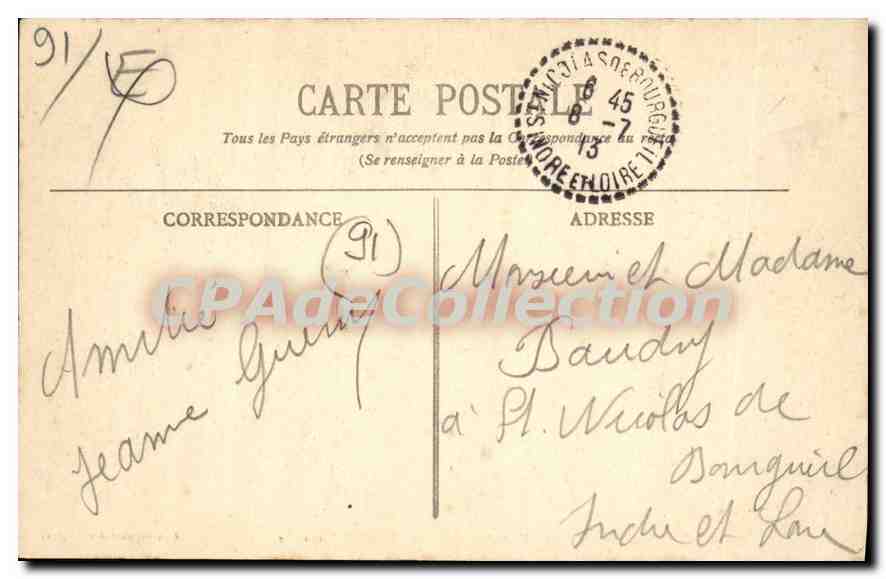 91/
E
CARTE POSTALE
Tous les Pays étrangers n'acceptent pas la Correspondance au recto
(Se renseigner à la Poste)
ST NICOLAS DE BOURGUEIL
6 45
8 -7
13
INDRE ET LOIRE
CORRESPONDANCE
ADRESSE
(91)
Monsieur et Madame
Baudry
à St. Nicolas de
Bourgueil
Indre et Loire
Amélie
Jeanne Guerry
CPAdeCollection